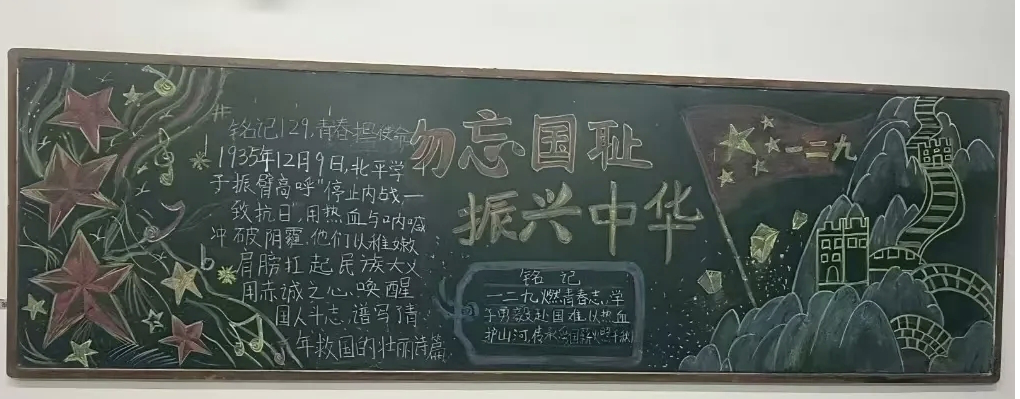 铭记129,青春担使命
1935年12月9日,北平学
子振臂高呼"停止内战一
致抗日",用热血与呐喊
冲破阴霾,他们以稚嫩
肩膀扛起民族大义
用赤诚之心,唤醒
国人斗志,谱写了青
年救国的壮丽诗篇
勿忘国耻
振兴中华
一二九
铭记
一二九燃青春志,学
子勇毅赴国难,以热血
护山河,传承爱国薪火